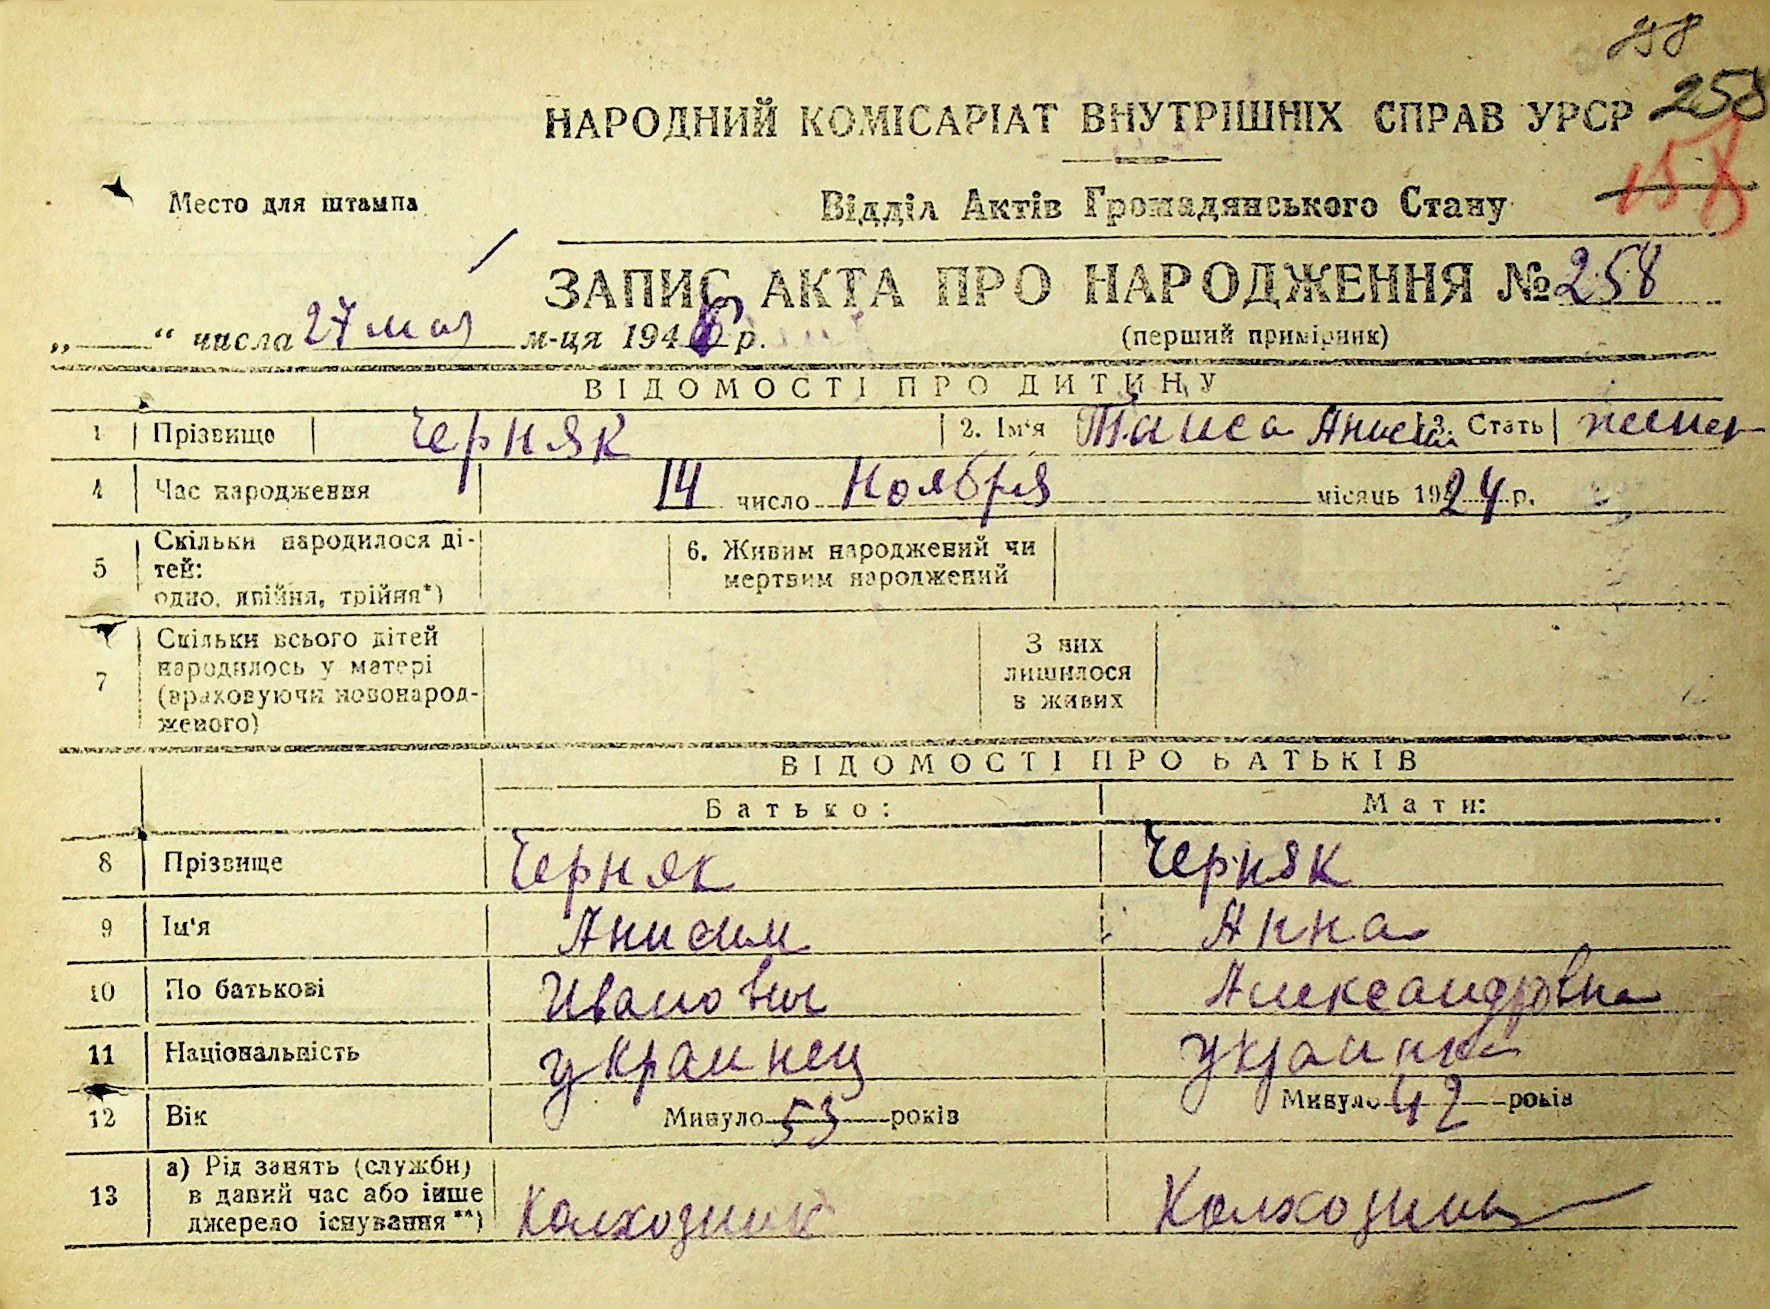 258
НАРОДНИЙ КОМІСАРІАТ ВНУТРІШНІХ СПРАВ УРСР 258
158
Место для штампа
Відділ Актів Громадянського Стану
ЗАПИС АКТА ПРО НАРОДЖЕННЯ № 258
„ “ числа 27 мая м-ця 194 р.
(перший примірник)
ВІДОМОСТІ ПРО ДИТИНУ
1 Прізвище Черняк 2. Ім‘я Таиса 3. Стать женск
4 Час народження 14 число Ноября місяць 1924 р.
5 Скільки народилося ді-
тей:
одно, двійня, трійня*)
6. Живим народжений чи
мертвим народжений
7 Скільки всього дітей
народилось у матері
(враховуючи новонарод-
женого)
З них
лишилося
в живих
ВІДОМОСТІ ПРО БАТЬКІВ
Батько: Мати:
8 Прізвище Черняк Черняк
9 Ім‘я Анисим Анна
10 По батькові Иванович Александровна
11 Національність украинец украинка
12 Вік Минуло 53 років Минуло 42 років
13 а) Рід занять (служби)
в даний час або інше
джерело існування**)
Колхозник Колхозница